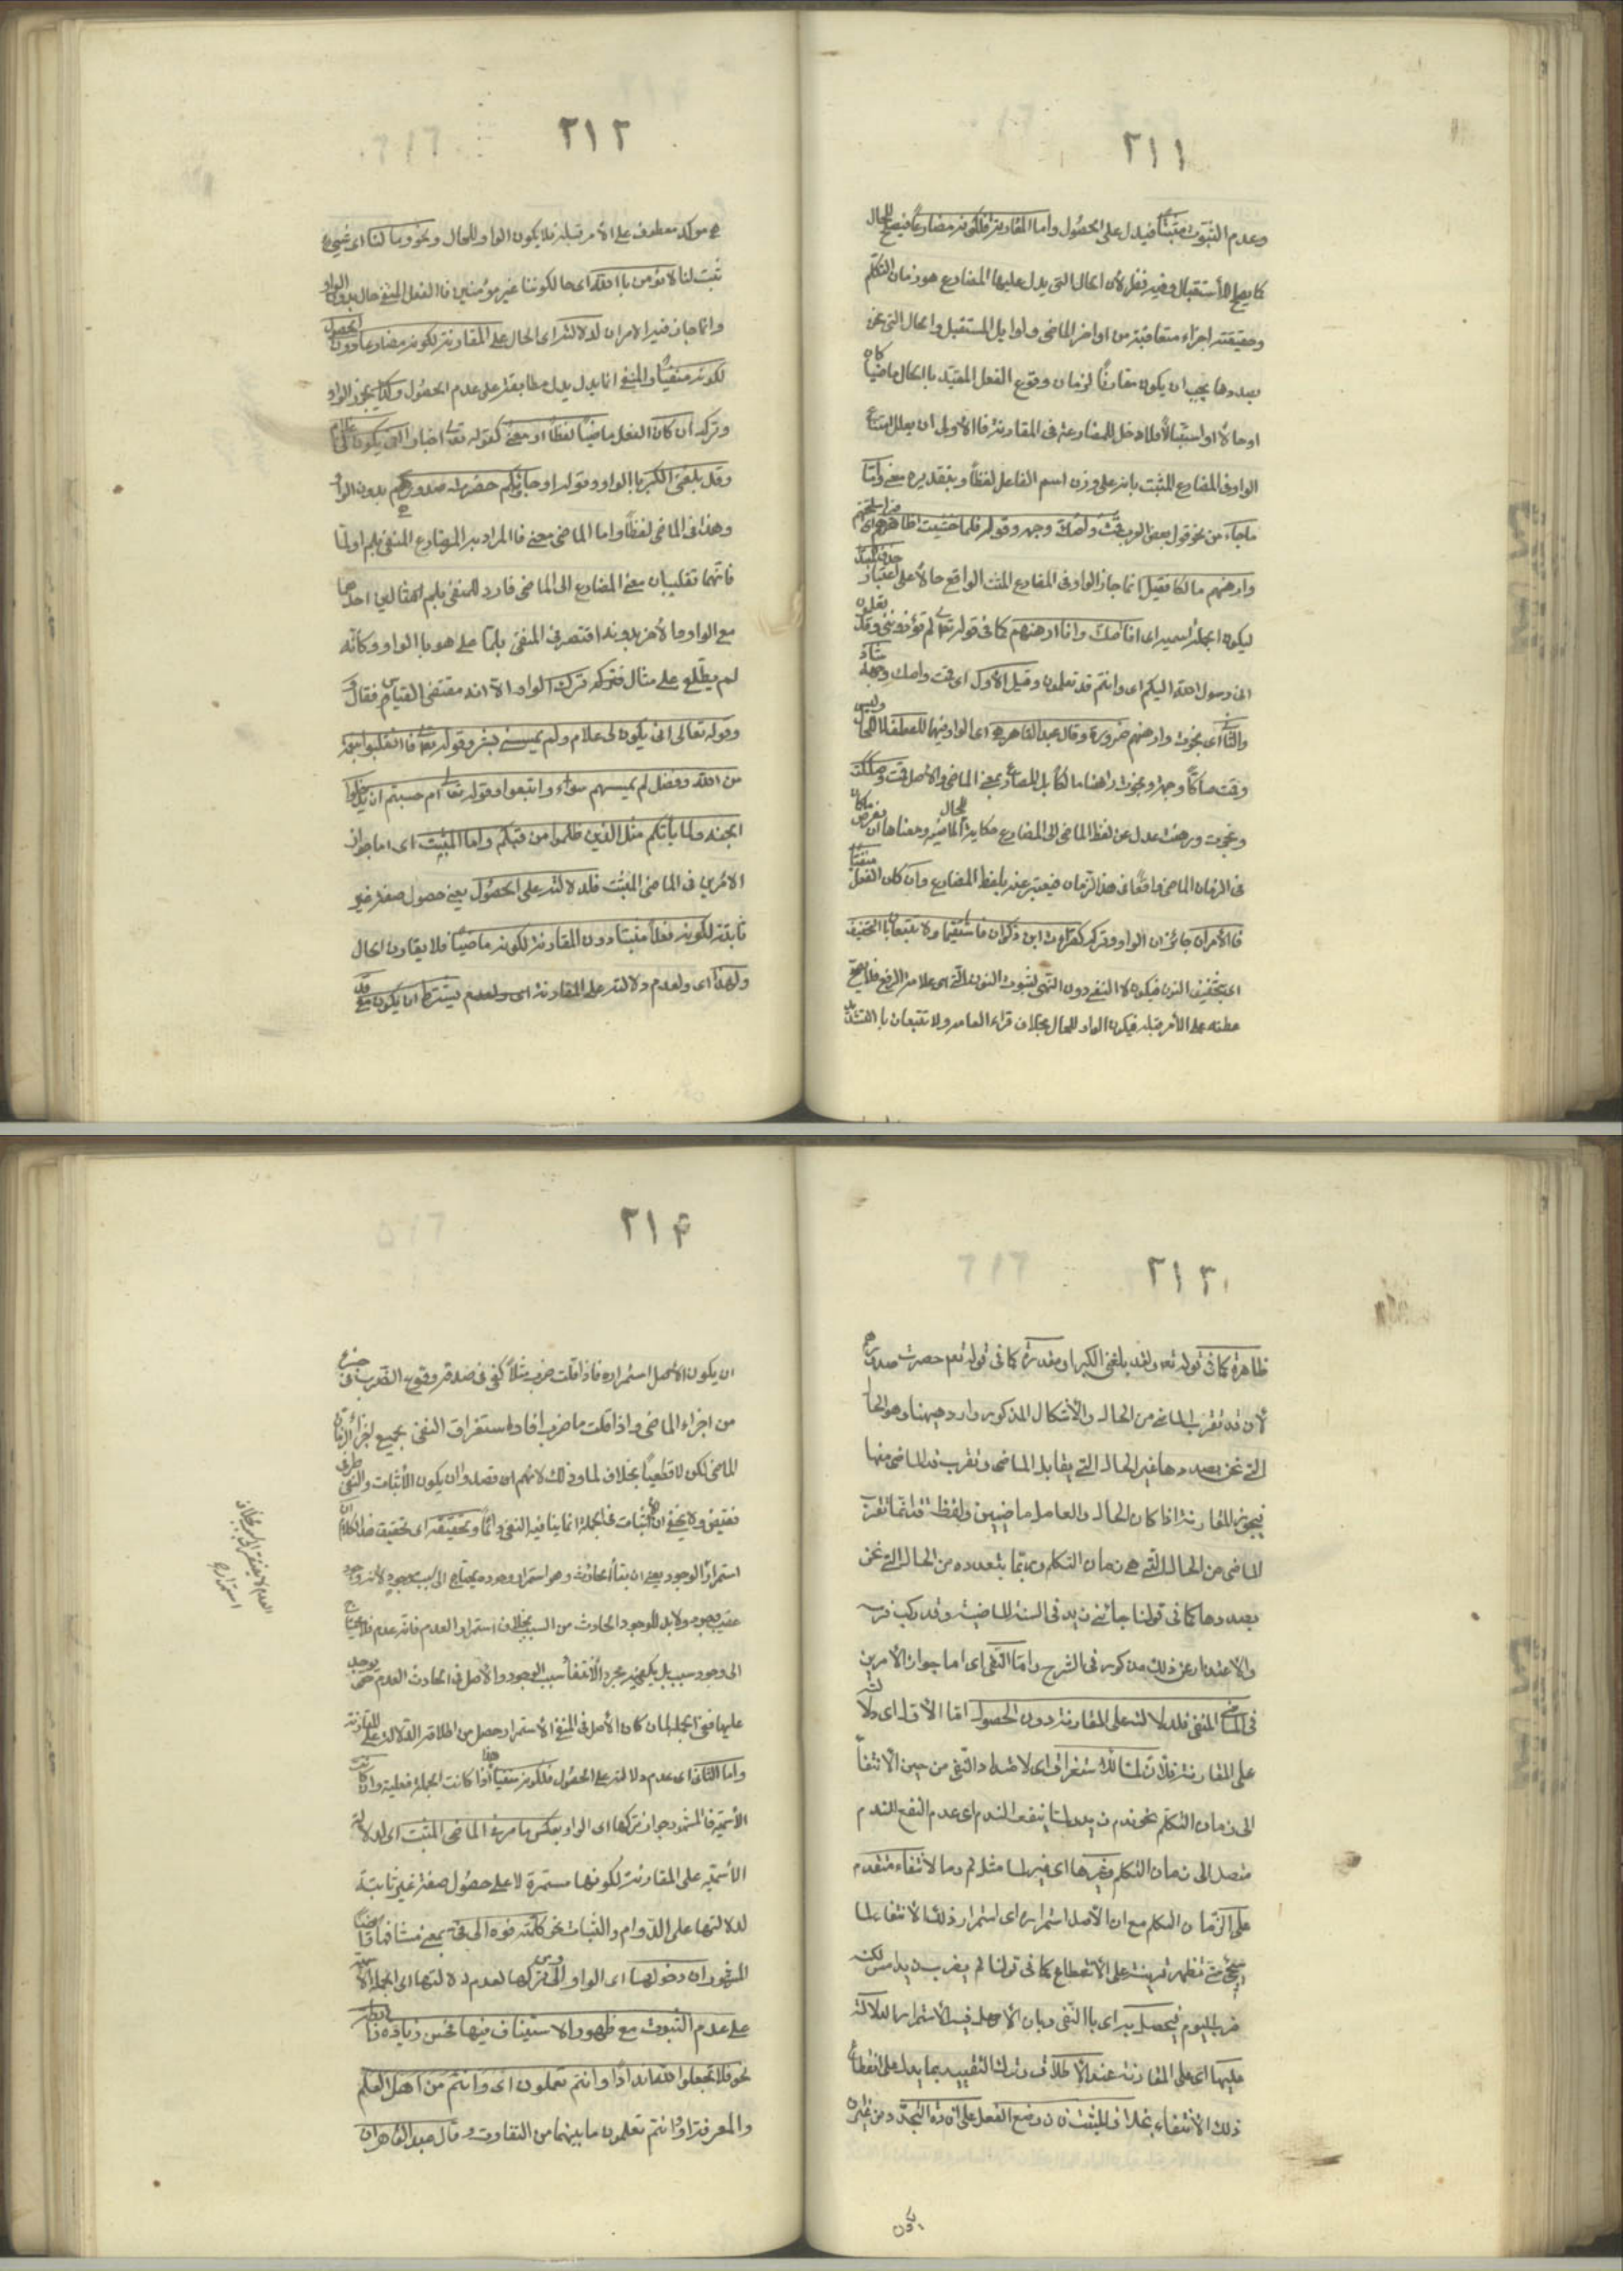 ٢١١
وعدم الثبوت مثبتا فيدل على الحصول واما المقارنة فلكونه مضارعا فيصلح للحال
كما يصلح للأستقبال وفيه نظر لأن الحال التى يدل عليها المضارع هو زمان التكلم
وحقيقته اجزاء متعاقبة من اواخر الماضى واوايل المستقبل والحال التى نحن
بصددها يجب ان يكون مقارنًا لزمان وقوع الفعل المقيد باالحال ماضيا كان
اوحالا او استقبالا فلا دخل للمضارعة فى المقارنة فاالأولى ان يعلل امتناع
الواو فى المضارع المثبت بانه على وزن اسم الفاعل لفظًا وبتقديره معنى وامّا
ماجاء من نحو قول بعض العرب قمت واصك وجهه وقوله فلما خشيت اظافيرهم اى اسلحتهم
وارهنهم مالكا فقيل انما جاز الواو فى المضارع المثبت الواقع حالا على اعتبار حذف المبتدا
ليكون الجملة اسمية اى انا اصك وانا ارهنهم كما فى قوله تع لم تؤذوننى وقد تعلمون
انى رسول الله اليكم اى وانتم قد تعلمون وقيل الأول اى قمت واصك وجهه شاذ
والثانى اى نجوت وارهنهم ضرورة وقال عبد القاهر هى اى الواو فيهما للعطف وليس للحال
وقمت صاكًا وجهه ونجوت راهنا مالكا بل المضارع بمعنى الماضى والأصل قمت وصككت
ونجوت ورهنت عدل عن لفظ الماضى الى المضارع حكاية للحال الماضية ومعناها ان يفرض ماكان
فى الزمان الماضى واقعًا فى هذا الزمان فيعبر عنه بلفظ المضارع وان كان الفعل منفيًا
فاالأمران جائزان الواو وتركه كقراءة ابن ذكوان فاستقيما ولا تتبعان باالتخفيف
اى بتخفيف النون فيكون لا للنفى دون النهى لثبوت النون التى هى علامة الرفع فلا يصح
عطفه على الأمر قبله فيكون الواو للحال بخلاف قراءة العامه ولا تتبعان باالتشديد
٢١٢
مؤكد معطوف على الأمر قبله فلا يكون الواو للحال ونحو وما لنا اى اى شىء
ثبت لنا لا نؤمن باالله اى حالكوننا غير مؤمنين فاالفعل المنفى حال بدون الواو
وانما جاز فيه الامران لدلالته اى الحال على المقارنة لكونه مضارعا دون الحصول
لكونه منفيًا والمنفى انما يدل مطابقة على عدم الحصول وكذا يجوز الواو
وتركه ان كان الفعل ماضيًا لفظًا او معنى كقوله تع اخبارا انى يكون لى غلام
وقد بلغنى الكبر باالواو وقوله او جاؤكم حصرت صدورهم بدون الواو
وهذا فى الماضى لفظًا واما الماضى معنى فاالمراد به المضارع المنفى بلم او لمّا
فانّهما تقلبان معنى المضارع الى الماضى فاورد للمنفى بلم مثالين احدهما
مع الواو والأخر بدونه واقتصر فى المنفى بلمّا على ما هو باالواو وكانّه
لم يطّلع على مثال فيه ترك الواو الاّ انه مقتضى القياس فقال
وقوله تعالى انى يكون لى غلام ولم يمسسنى بشر وقوله تع فاانقلبوا بنعمة
من الله وفضل لم يمسسهم سوء واتبعوا وقوله تع ام حسبتم ان تدخلوا
الجنه ولما يأتكم مثل الذين خلوا من قبلكم واما المثبت اى اما جواز
الامرين فى الماضى المثبت فلدلالته على الحصول يعنى حصول صفة غير
ثابتة لكونه فعلًا مثبتا دون المقارنة لكونه ماضيًا فلا يقارن الحال
ولهذا اى ولعدم دلالته على المقارنة اى ولعدم يشترط ان يكون مع قد
٢١٣
ظاهرة كما فى قوله تع ولقد بلغنى الكبر او مقدرة كما فى قوله تع حصرت صدورهم
لأن قد تقرب الماضى من الحال والأشكال المذكور وارد ههنا وهو ان الحال
التى نحن بصددها غير الحال التى يقابل الماضى وتقرب قد الماضى منها
فيجوز المقارنة اذا كان الحال والعامل ماضيين ولفظ قد انّما تقرّب
الماضى من الحال التى هى زمان التكلم وربّما يتعدده من الحال التى نحن
بصددها كما فى قولنا جائنى زيد فى السنة الماضية وقد ركب فرسه
والاعتذار عن ذلك مذكور فى الشرح وامّا النّفى اى اما جواز الأمرين
فى الماضى المنفى فلدلالته على المقارنة دون الحصول امّا الأوّل اى دلالته
على المقارنة فلأن لمّا للأستغراق اى لامتداد النّفى من حين الأنتفاء
الى زمان التكلم نحو ندم زيد ولمّا ينفعه الندم اى عدم النفع الندم
متصل الى زمان التكلم وغيرها اى غير لما مثل لم وما لأنتفاء متقدم
على زمان التكلم مع ان الأصل استمراره اى استمرار ذلك الأنتفاء لما
سيجئ حتى تظهر قرينة على الأنقطاع كما فى قولنا لم يضرب زيد امس لكنه
ضرب اليوم فيحصل به اى باالنّفى وبان الأصل فيه الأستمرار الدلالة
عليها اى على المقارنة عند الأطلاق وترك التقييد بما يدل على انقطاع
ذلك الأنتفاء بخلاف المثبت فان وضع الفعل على افادة التجدد من غير ان
يكون
٢١۴
ان يكون الأصل استمراره فاذا قلت ضرب مثلًا كفى فى صدقه وقوع الضرب فى جزء
من اجزاء الماضى واذا قلت ما ضرب افاد استغراق النفى بجميع اجزاء الزمان
الماضى لكن لا قطعيًا بخلاف لما وذلك لأنهم قصدوا ان يكون الأثبات والنفى طرفى
نقيض ولا يخفى ان الأثبات فى الجملة انما ينافيه النفى دائمًا وتحقيقه اى تحقيق هذا الكلام ان
استمرار الوجود يعنى ان بقاء الحادث وهو استمرار وجوده يحتاج الى سبب موجود لأنه وجود
عقيب وجود ولابد للوجود الحادث من السبب بخلاف استمرار العدم فانّه عدم فلا يحتاج
الى وجود سبب بل يكفيه مجرد انتفاء سبب الوجود والأصل فى الحادث العدم حتى يوجد
عليها ففى الجملة لما ان كان الأصل فى المنفى الأستمرار حصل من اطلاقه الدّلالة على المقارنة
واما الثانى اى عدم دلالته على الحصول فلكونه منفيًا هذا اذا كانت الجملة فعلية وان كانت
الأسميّة فالمشهور جواز تركها اى الواو بعكس ما مرّ فى الماضى المثبت اى لدلالة
الأسميّة على المقارنة لكونها مستمرة لا على حصول صفة غير ثابتة
لدلالتها على الدّوام والثبات نحو كلّمته فوه الى فىّ بمعنى مشافها وايضًا
المشهور ان دخولها اى الواو اولى من تركها لعدم دلالتها اى الجملة الأسميّة
على عدم الثبوت مع ظهور الاستيناف فيها فحسن زيادة رابط
نحو فلا تجعلوا لله اندادًا وانتم تعلمون اى وانتم من اهل العلم
والمعرفة او انتم تعلمون ما بينهما من التفاوت وقال عبد القاهر ان